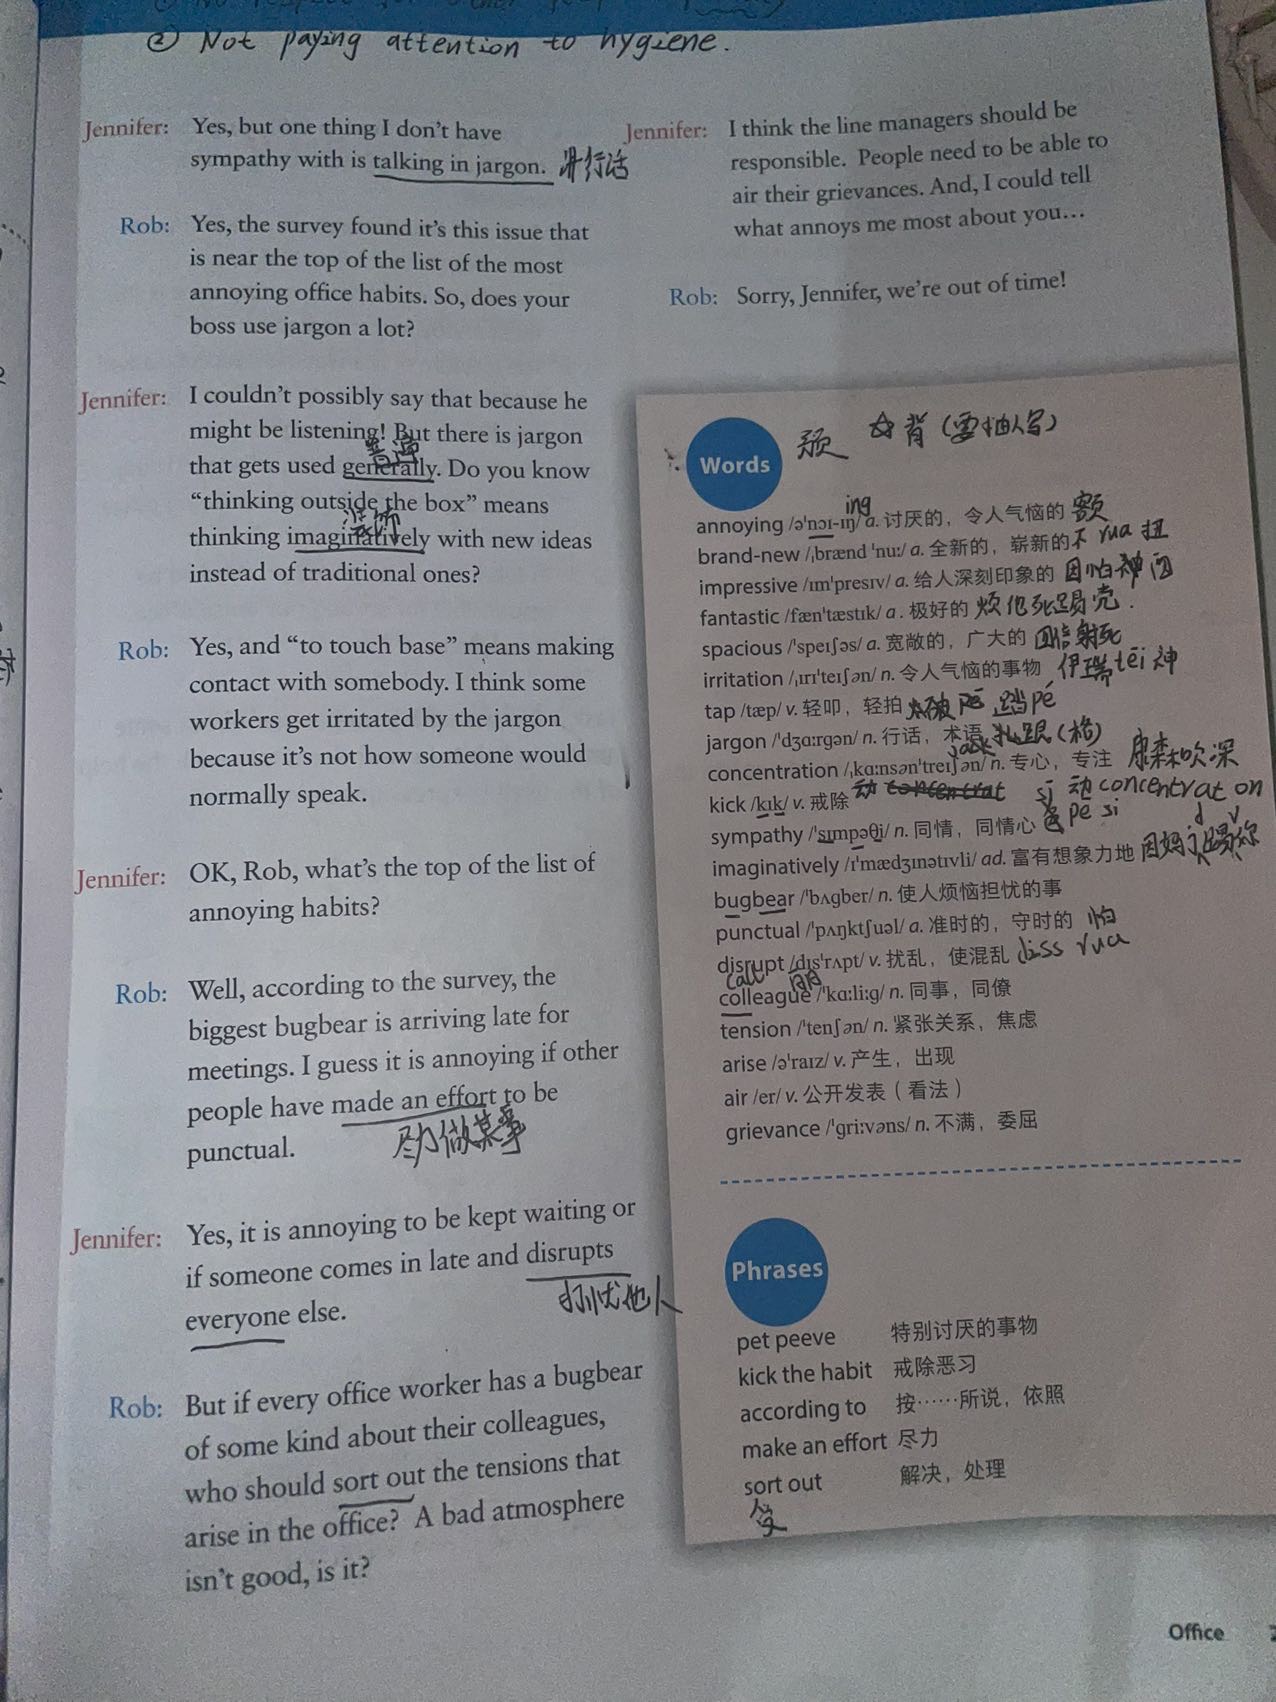 ② Not paying attention to hygiene.
Jennifer: Yes, but one thing I don't have
sympathy with is talking in jargon. 讲行话
Rob: Yes, the survey found it's this issue that
is near the top of the list of the most
annoying office habits. So, does your
boss use jargon a lot?
Jennifer: I couldn't possibly say that because he
might be listening! But there is jargon
普遍
that gets used generally. Do you know
"thinking outside the box" means
thinking imaginatively with new ideas
instead of traditional ones?
Rob: Yes, and "to touch base" means making
contact with somebody. I think some
workers get irritated by the jargon
because it's not how someone would
normally speak.
Jennifer: OK, Rob, what's the top of the list of
annoying habits?
Rob: Well, according to the survey, the
biggest bugbear is arriving late for
meetings. I guess it is annoying if other
people have made an effort to be
punctual. 尽力做某事
Jennifer: Yes, it is annoying to be kept waiting or
if someone comes in late and disrupts
everyone else. 打扰他人
Rob: But if every office worker has a bugbear
of some kind about their colleagues,
who should sort out the tensions that
arise in the office? A bad atmosphere
isn't good, is it?
Jennifer: I think the line managers should be
responsible. People need to be able to
air their grievances. And, I could tell
what annoys me most about you…
Rob: Sorry, Jennifer, we're out of time!
Words 背
ing
annoying /ə'nɔɪ-ɪŋ/ a. 讨厌的，令人气恼的 额
brand-new /ˌbrænd 'nu:/ a. 全新的，崭新的 不 rua 扭
impressive /ɪm'presɪv/ a. 给人深刻印象的 因怕神
fantastic /fæn'tæstɪk/ a. 极好的 烦他死踢壳
spacious /'speɪʃəs/ a. 宽敞的，广大的 射死
irritation /ˌɪrɪ'teɪʃən/ n. 令人气恼的事物 伊瑞 tēi 神
tap /tæp/ v. 轻叩，轻拍 踏 pé
jargon /'dʒɑ:rgən/ n. 行话，术语 扎跟（格）
concentration /ˌkɑ:nsən'treɪʃən/ n. 专心，专注 康森吹深
kick /kɪk/ v. 戒除 动 concentrat 动 concentrat on
sympathy /'sɪmpəθi/ n. 同情，同情心 pe si
imaginatively /ɪ'mædʒɪnətɪvli/ ad. 富有想象力地 因妈
bugbear /'bʌgber/ n. 使人烦恼担忧的事
punctual /'pʌŋktʃuəl/ a. 准时的，守时的 怕
disrupt /dɪs'rʌpt/ v. 扰乱，使混乱 diss rua
call
colleague /'kɑ:li:g/ n. 同事，同僚
tension /'tenʃən/ n. 紧张关系，焦虑
arise /ə'raɪz/ v. 产生，出现
air /er/ v. 公开发表（看法）
grievance /'gri:vəns/ n. 不满，委屈
Phrases
pet peeve 特别讨厌的事物
kick the habit 戒除恶习
according to 按……所说，依照
make an effort 尽力
sort out 解决，处理
Office